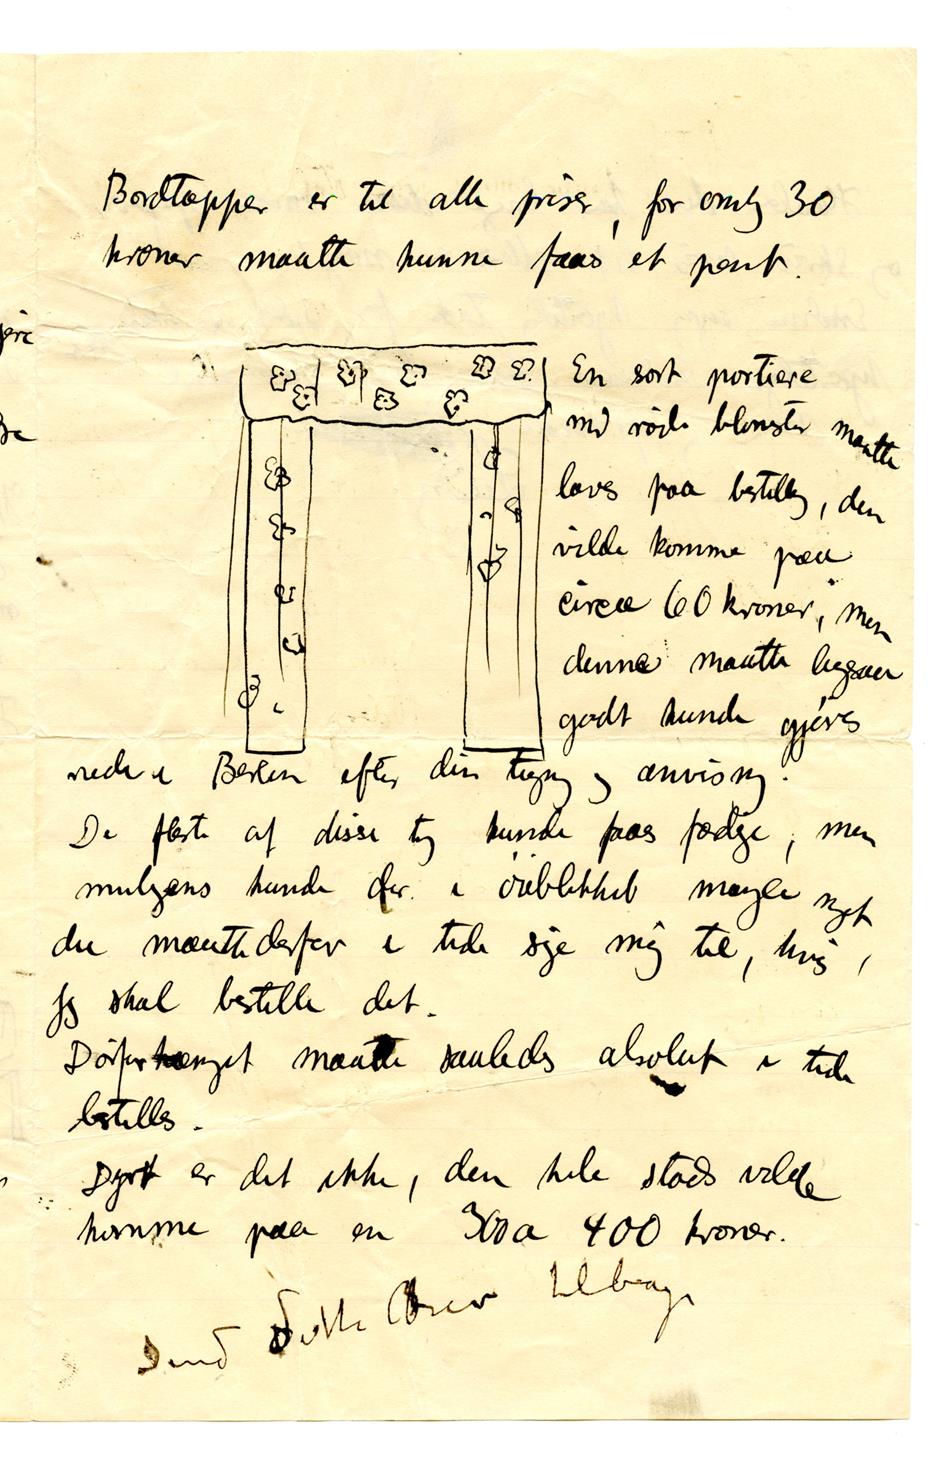 Bordtæpper er til alle priser, for omtr 30
kroner maatte kunne faaes et pent.
En sort portiere
md røde blomster maatte
laves paa bestilling, den
vilde komme paa
circa 60 kroner, men
denne maatte ligesaa
godt kunde gjøres
nede i Berlin efter din tegng og anvisng.
De fleste af disse tøj kunde faaes færdige, men
muligens kunde der i øieblikket mangle noget
du maatte derfor i tide sige mig til, hvis
jeg skal bestille det.
Dörforhænget maatte saaledes absolut i tide
bestilles.
Dyrt er det ikke, den hele stads vilde
komme paa en 300 a 400 kroner.
Send dette Brev tilbage